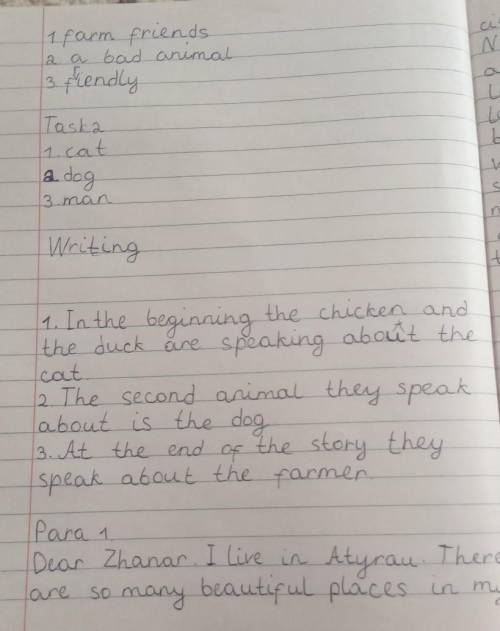 1 farm friends
2 a bad animal
3 friendly
Task 2
1. cat
2 dog
3. man
Writing
1. In the beginning the chicken and
the duck are speaking about the
cat.
2 The second animal they speak
about is the dog
3. At the end of the story they
speak about the farmer.
Para 1.
Dear Zhanar. I live in Atyrau. There
are so many beautiful places in my